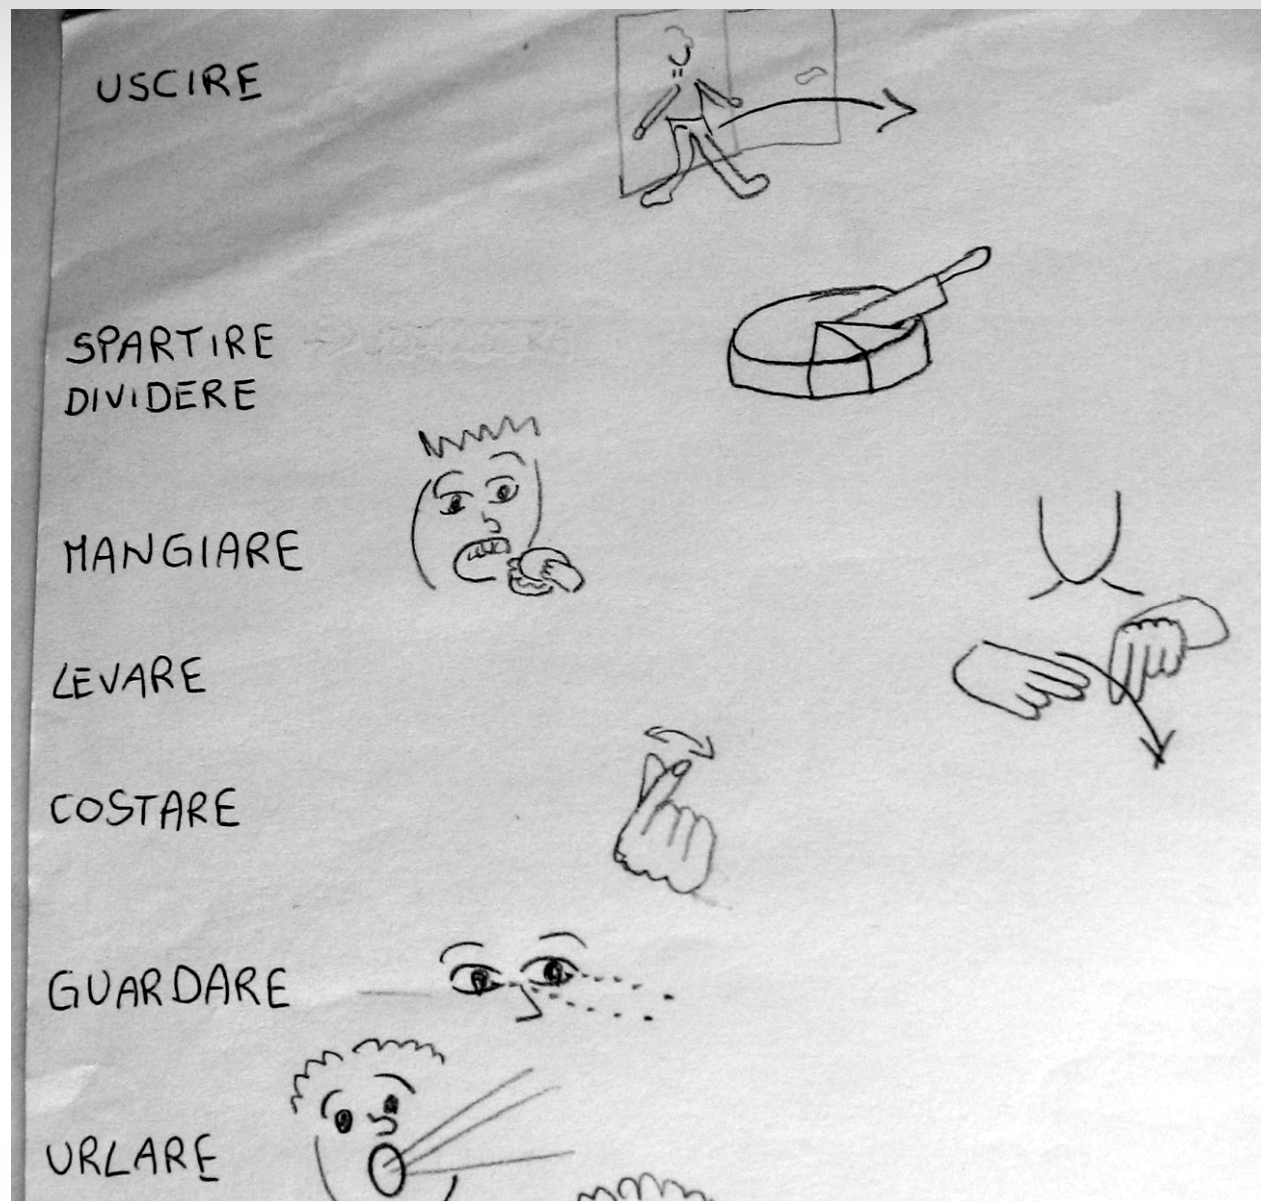 USCIRE
SPARTIRE
DIVIDERE
MANGIARE
LEVARE
COSTARE
GUARDARE
URLARE